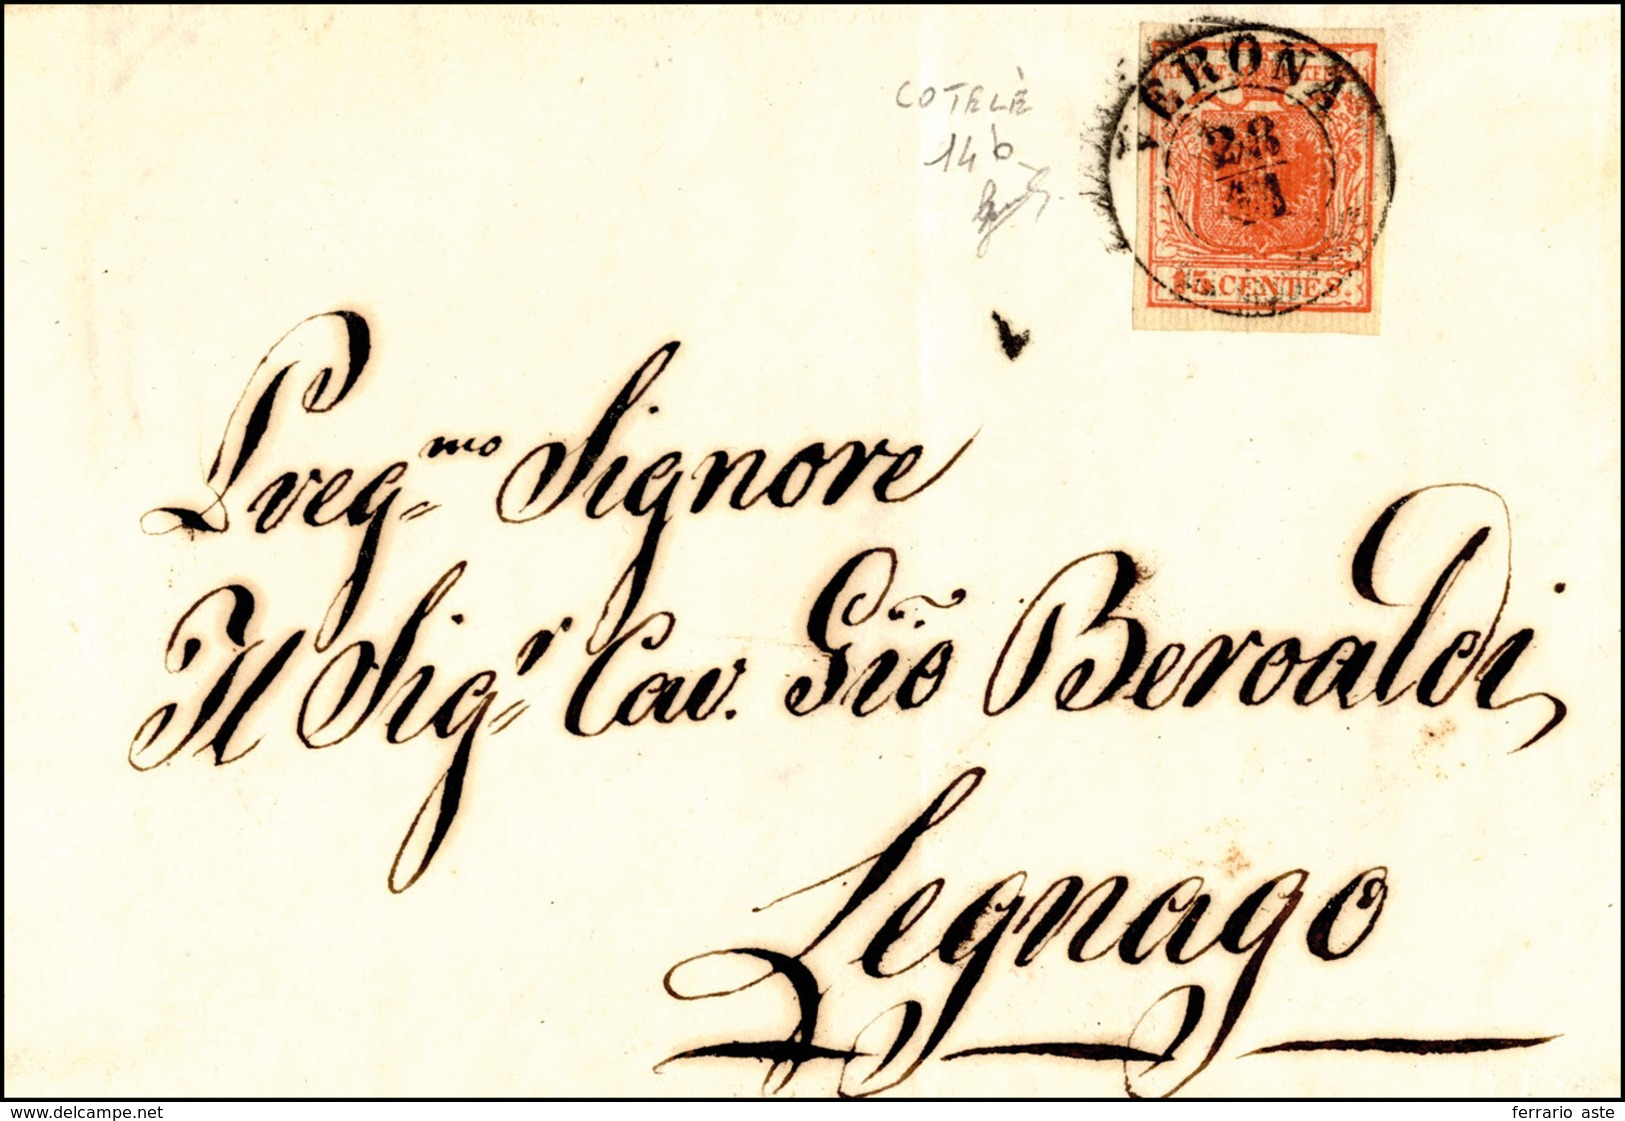 VERONA
KKPOST-STEMPEL
28
15 CENTES.
COTELÈ
14b
Preg.mo Signore
Il Sig.r Cav. Gio Beroaldi,
Legnago
delcampe.net
ferrario aste